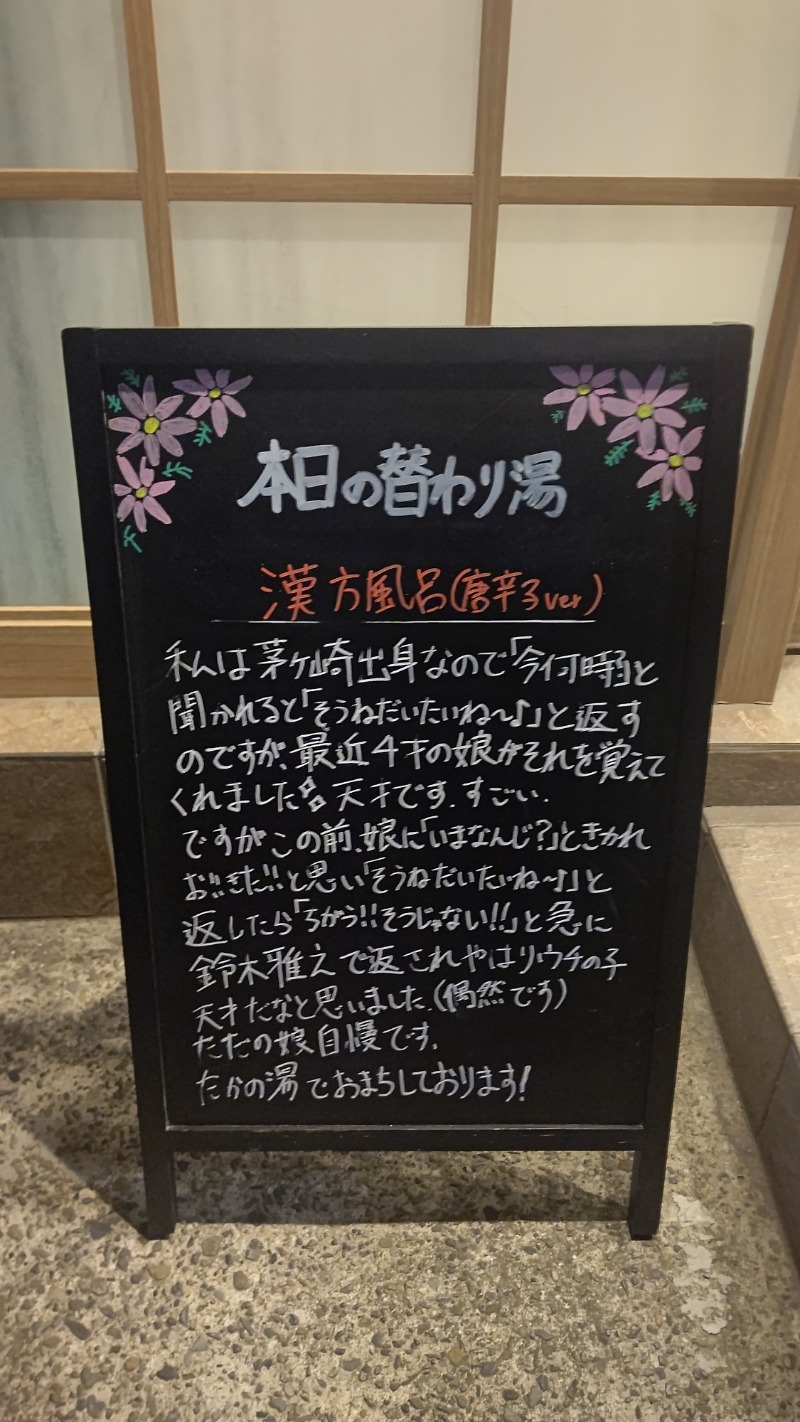 本日の替わり湯
漢方風呂(唐辛子ver)
私は茅ヶ崎出身なので「今何時」と
聞かれると「そうねだいたいね〜♪」と返す
のですが、最近4才の娘がそれを覚えて
くれました 天才です.すごい.
ですがこの前、娘に「いまなんじ?」ときかれ
お!!きた!!と思い「そうねだいたいね〜♪」と
返したら「ちがう!!そうじゃない!!」と急に
鈴木雅之で返されやはりウチの子
天才だなと思いました.(偶然です)
ただの娘自慢です.
たかの湯でおまちしております!